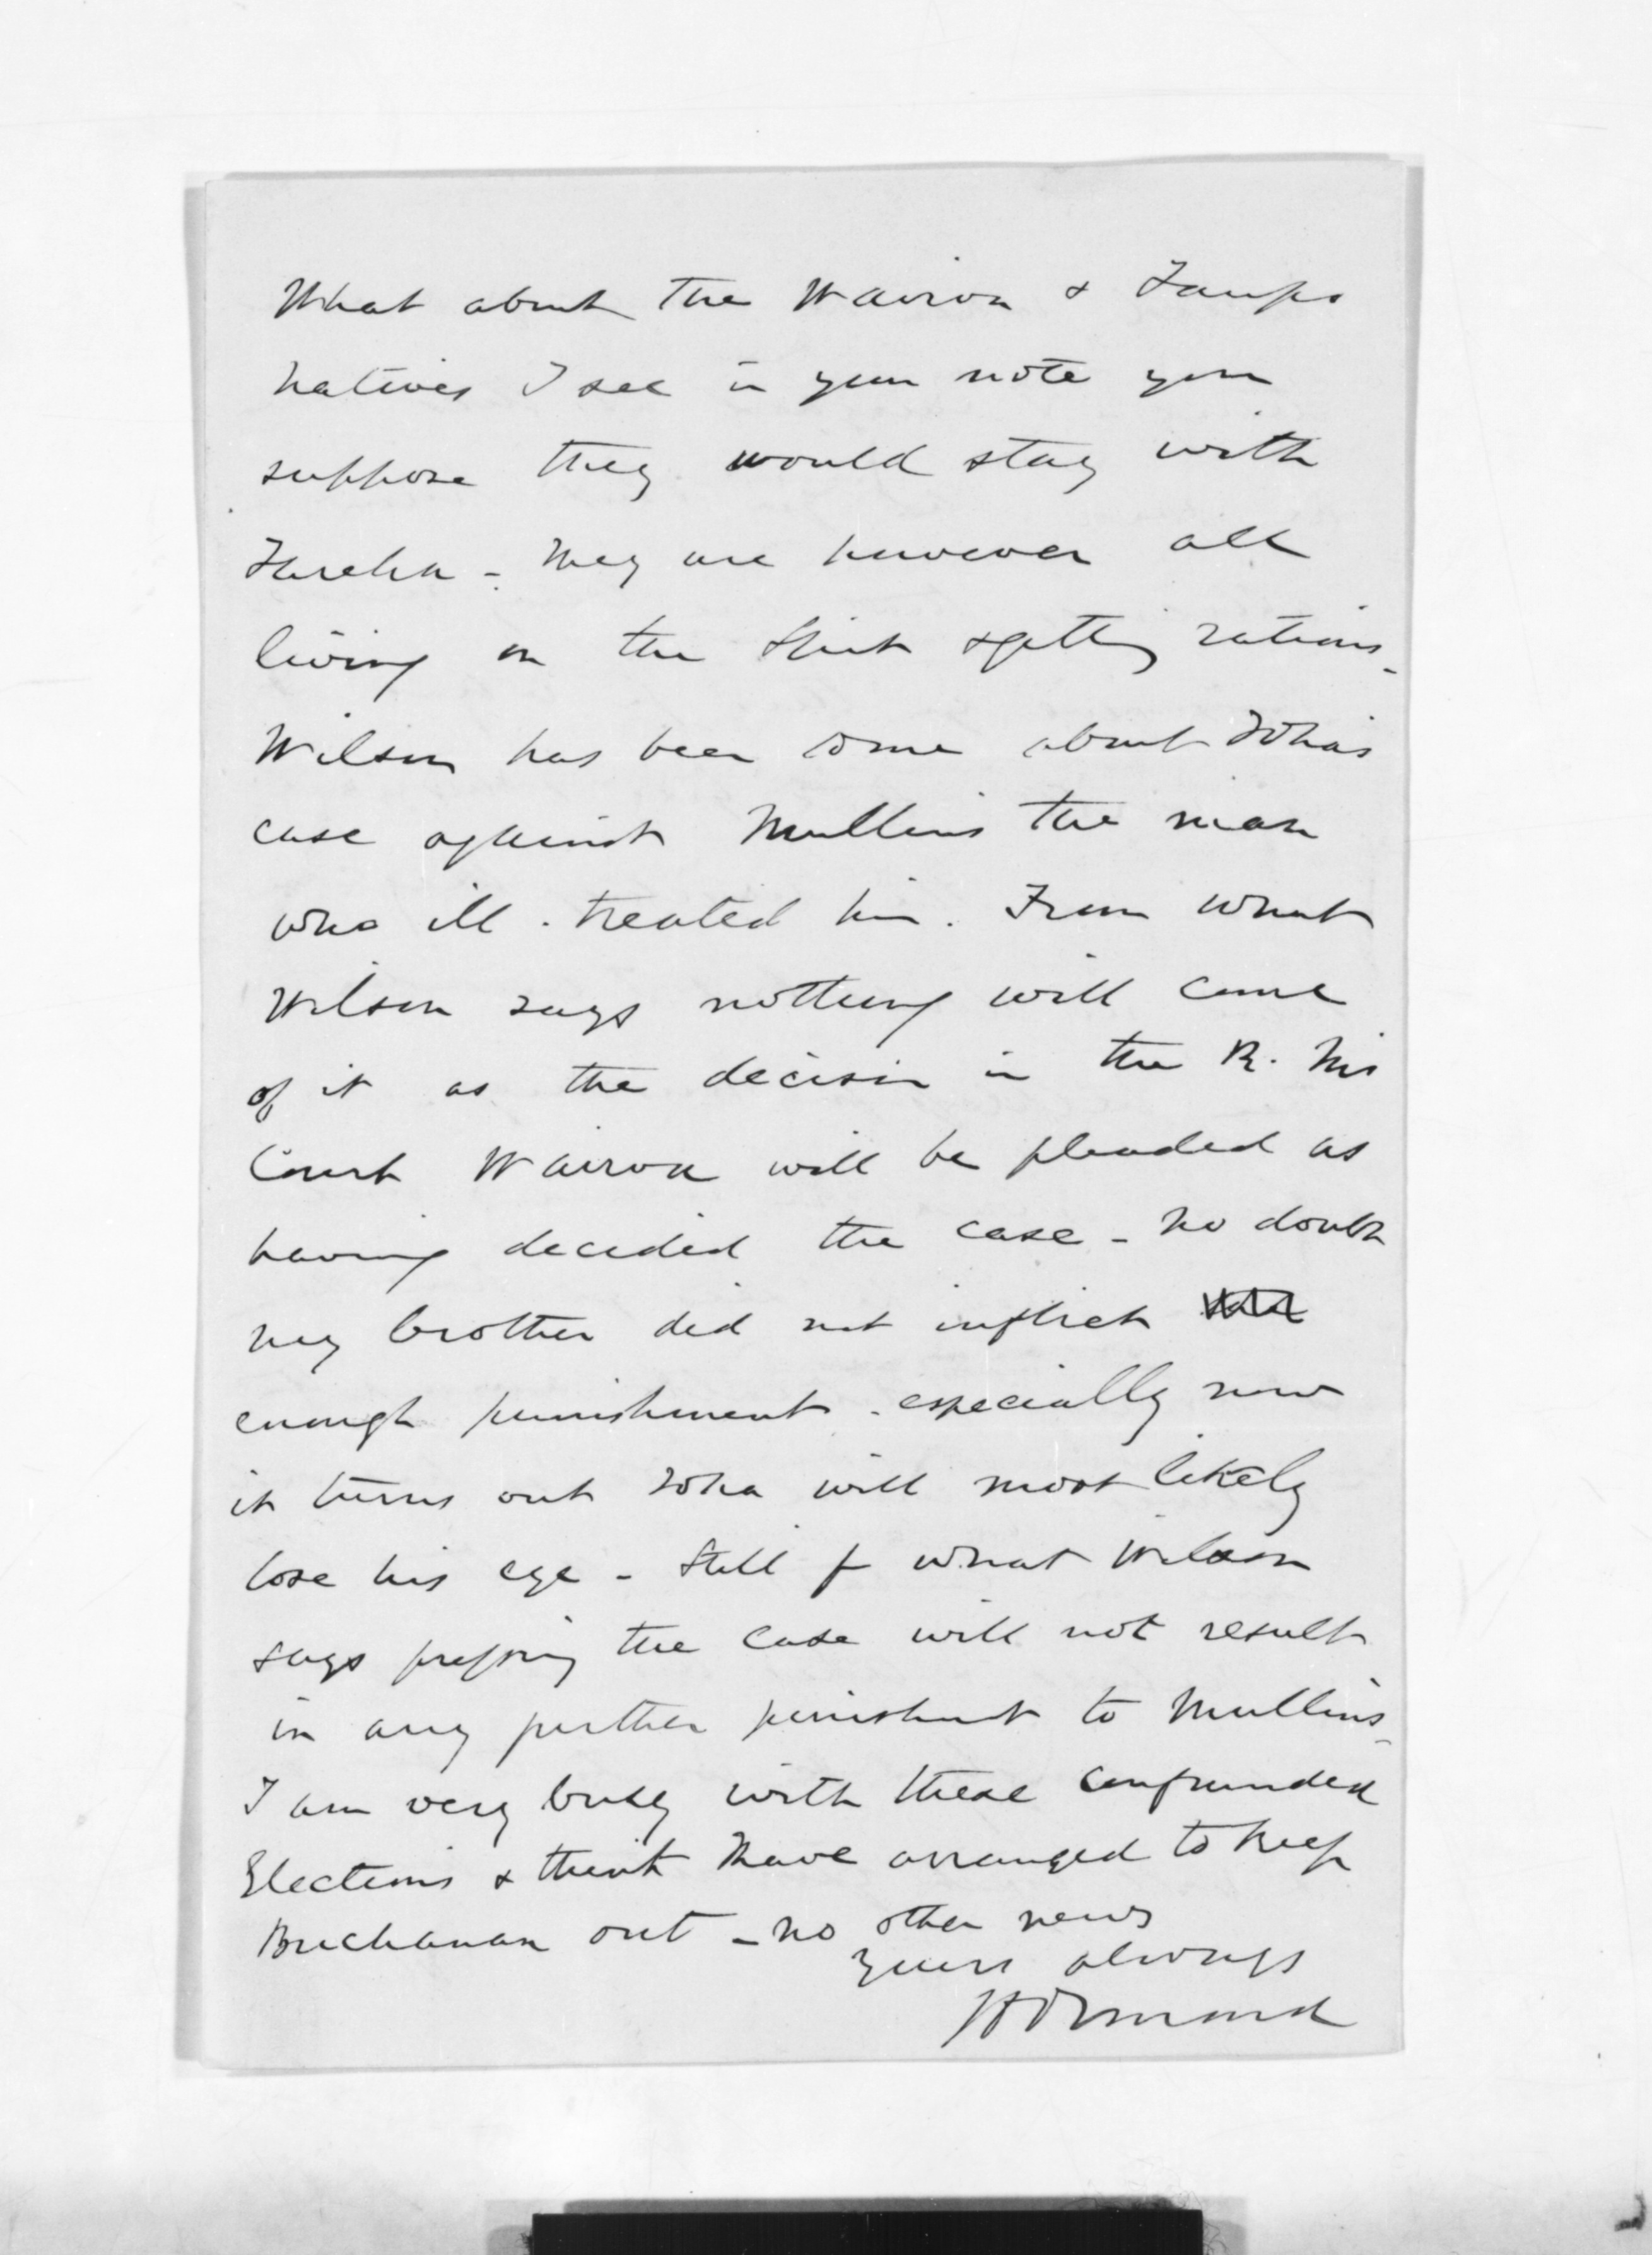 What about the Wairoa & Taupo
natives I see in your note you
suppose they would stay with
Tareha - They are however all
living on the Spit & getting rations -
Wilson has been some about Toha's
case against Mullins the man
who ill-treated him. From what
Wilson says nothing will come
of it as the decision in the R. M's
Court Wairoa will be pleaded as
having decided the case - No doubt
my brother did not inflict
enough punishment - especially now
it turns out Toha will most likely
lose his eye - Still f what Wilson
says pressing the case will not result
in any further punishment to Mullins -
I am very busy with these confounded
Elections & think I have arranged to keep
Buchanan out - no other news
Yours always
J D Ormond